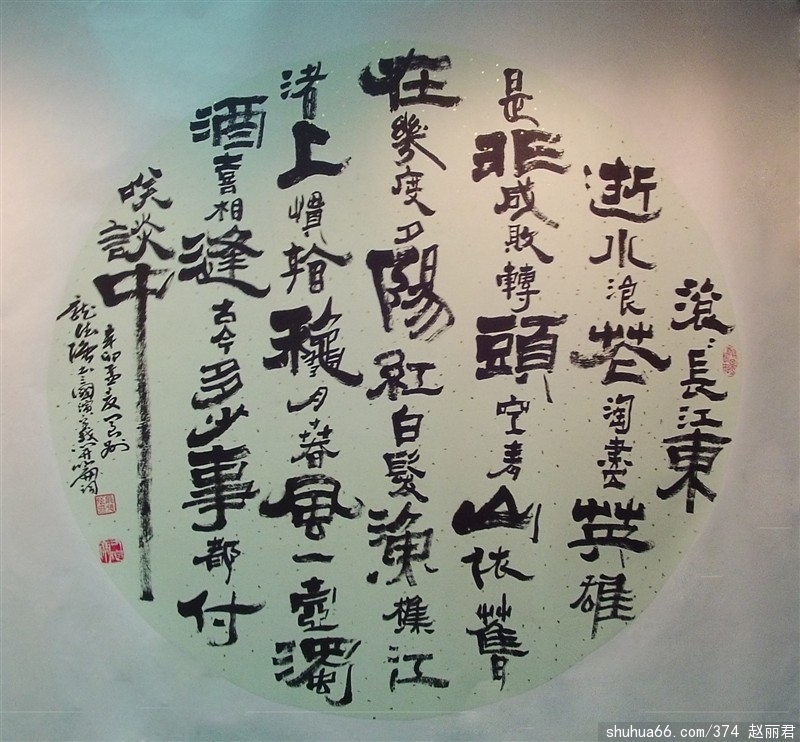 滾滾長江東
逝水浪花淘盡英雄
是非成敗轉頭空青山依舊
在幾度夕陽紅白髮漁樵江
渚上慣看穐月春風一壺濁
酒喜相逢古今多少事都付
咲談中
辛卯孟夏
書三國演義開篇词
shuhua66.com/374 赵丽君